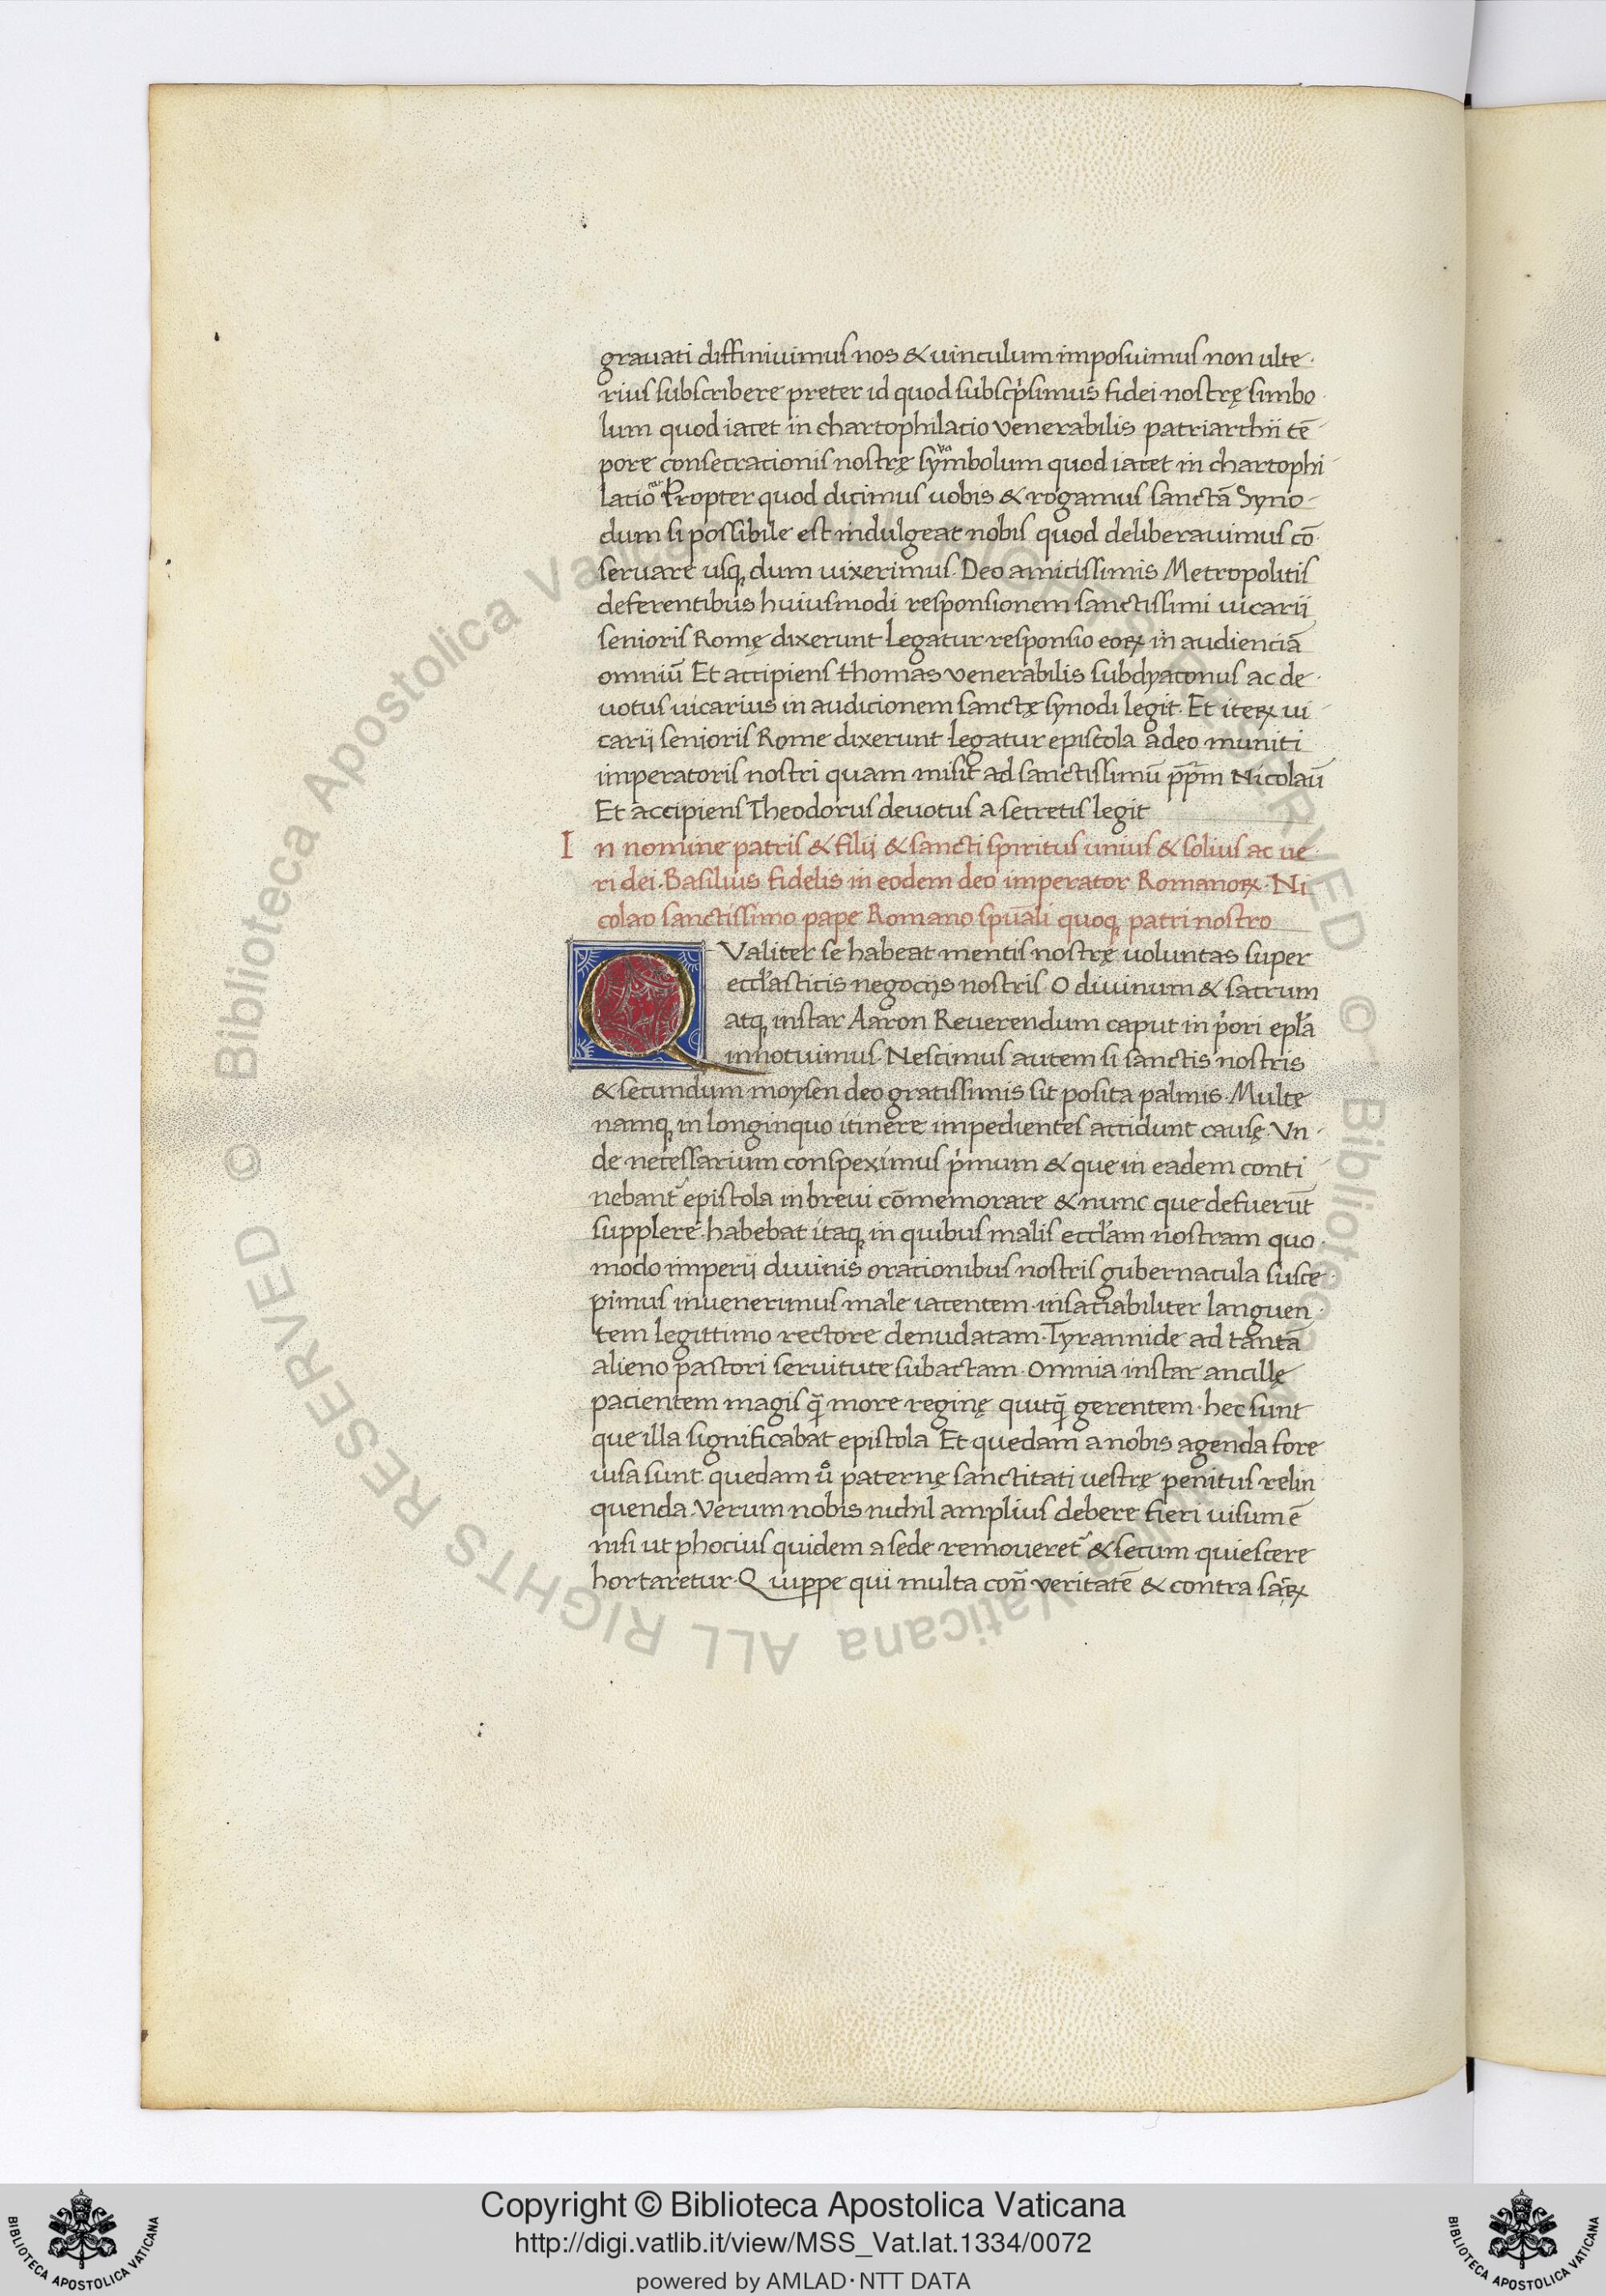 grauati diffiniuimus nos & uinculum imposuimus non ulte-
rius subscribere preter id quod subscp̾simus fidei nostrę simbo
lum quod iacet in chartophilacio venerabilis patriarchii tē-
pore consecracionis nostrę symbolum quod iacet in chartophi-
lacio Propter quod dicimus uobis & rogamus sanctā Syno-
dum si possibile est indulgeat nobis quod deliberauimus cō-
seruare usq; dum uixerimus. Deo amicissimis Metropolitis
deferentibus huiusmodi responsionem sanctissimi uicarii
senioris Romę dixerunt Legatur responsio eoꝝ in audienciā
omniū Et accipiens thomas venerabilis subdyaconus ac de-
uotus uicarius in audicionem sanctę synodi legit. Et iteꝝ ui-
carii senioris Rome dixerunt legatur epistola adeo muniti
imperatoris nostri quam misit ad sanctissimū pp̄m Nicolaū
Et accipiens Theodorus deuotus a secretis legit
In nomine patris & filii & sancti spiritus unius & solius ac ue-
ri dei. Basilius fidelis in eodem deo imperator Romanoꝝ. Ni
colao sanctissimo pape Romano spūali quoq; patri nostro
QValiter se habeat mentis nostrę uoluntas super
eccl̄asticis negocijs nostris O diuinum & sacrum
atq; instar Aaron Reuerendum caput in p̾ori epl̄a
innotuimus. Nescimus autem si sanctis nostris
& secundum moysen deo gratissimis sit posita palmis. Multe
namq; in longinquo itinere impedientes accidunt causę. Vn-
de necessarium conspeximus p̾mum & que in eadem conti-
nebant̾ epistola in breui cōmemorare & nunc que defuerūt
supplere. habebat itaq; in quibus malis eccl̄am nostram quo-
modo imperii diuinis orationibus nostris gubernacula susce-
pimus inuenerimus male iacentem. insaciabiliter languen-
tem legittimo rectore denudatam. Tyrannide ad tantā
alieno pastori seruitute subactam. Omnia instar ancillę
pacientem magis q̄ more reginę quicq̄ gerentem. hec sunt
que illa significabat epistola Et quedam a nobis agenda fore
uisa sunt. quedam u̾o paternę sanctitati uestrę penitus relin
quenda. Verum nobis nichil amplius debere fieri uisum ē
nisi ut phocius quidem a sede remoueret̾ & secum quiescere
hortaretur. Quippe qui multa con̄ veritatē & contra sāꝝ
Copyright © Biblioteca Apostolica Vaticana
http://digi.vatlib.it/view/MSS_Vat.lat.1334/0072
powered by AMLAD·NTT DATA
BIBLIOTECA APOSTOLICA VATICANA
BIBLIOTECA APOSTOLICA VATICANA
© Biblioteca Apostolica Vaticana ALL RIGHTS RESERVED
© Biblioteca Apostolica Vaticana ALL RIGHTS RESERVED